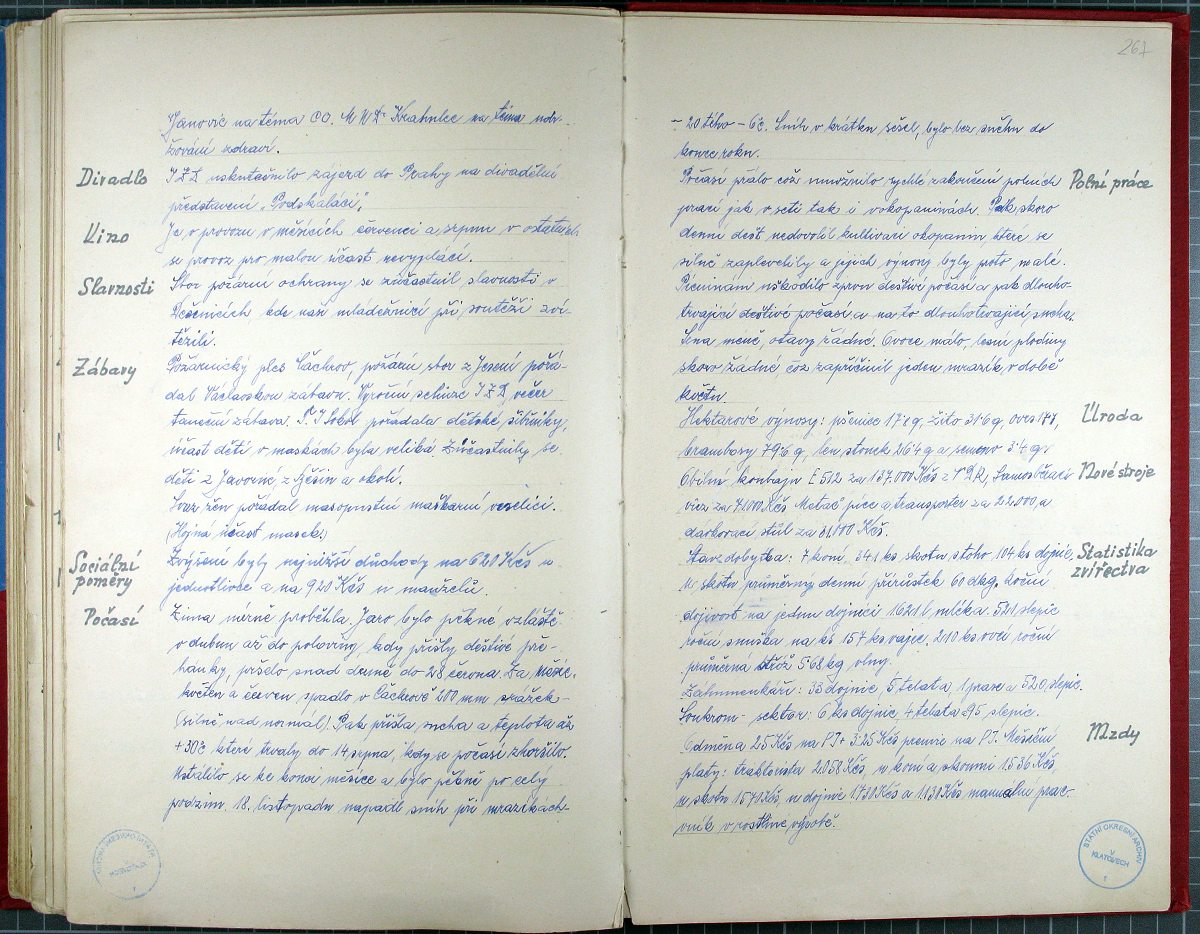 Janovic na téma CO. MUDr Krahulec na téma udr-
žování zdraví.
Divadlo
JZD uskutečnilo zájezd do Prahy na divadelní
představení „Podskaláci“,
Kino
Je v provozu v měsících červenci a srpnu v ostatních
se provoz pro malou účast nevyplácí.
Slavnosti
Sbor požární ochrany se zúčastnil slavnosti v
Dešenicích kde naši mládežníci při soutěži zví-
tězili.
Zábavy
Požárnický ples Čachrov, požární sbor z Jesení pořá-
dal Václavskou zábavu. Výroční schůze JZD večer
taneční zábava. T.J Sokol pořádala dětské šibřinky,
účast dětí v maskách byla veliká zúčastnily se
děti z Javorné, z Běšin a okolí.
Svaz žen pořádal masopustní maškarní veselici.
(Hojná účast masek.)
Sociální
poměry
Zvýšeny byly nejnižší důchody na 620 Kčs u
jednotlivce a na 920 Kčs u manželů.
Počasí
Zima mírně proběhla. Jaro bylo pěkné zvláště
v dubnu až do poloviny, kdy přišly deštivé pře-
háňky, pršelo snad denně do 28 června. Za měsíc
květen a červen spadlo v Čachrově 200 mm srážek
(silně nad normál). Pak přišla sucha a teplota až
+30°c které trvaly do 14 srpna, kdy se počasí zhoršilo.
Ustálilo se ke konci měsíce a bylo pěkně po celý
podzim, 18. listopadu napadl sníh při mrazíkách
267
- 20 tého - 6°c. Sníh v krátku sešel, bylo bez sněhu do
konce roku.
Polní práce
Počasí přálo což umožnilo rychlé zakončení polních
prací jak v setí tak i v okopaninách. Pak skoro
denní dešť nedovolil kultivaci okopanin které se
silně zaplevelily a jejich výnosy byly proto malé.
Pícninám uškodilo zprvu deštivé počasí a pak dlouho-
trvající deštivé počasí a na to dlouhotrvající sucha.
Sena méně, otavy žádné. Ovoce málo, lesní plodiny
skoro žádné, což zapříčinil jeden mrazík v době
květu.
Úroda
Hektarové výnosy: pšenice 17'1 q, žito 31'6 q, oves 17'7,
brambory 79'6 q, len stonek 26'4 q a semeno 3'4 q.
Nové stroje
Obilní kombajn E 512 za 137.000 Kčs z NDR, Samosběrací
vůz za 41000 Kčs Metač píce a transporter za 22.000 a
dávkovací stůl za 31.000 Kčs.
Statistika
zvířectva
Stav dobytka: 7 koní, 341 ks skotu z toho 104 ks dojnic.
U skotu průměrný denní přírůstek 60 dkg. Roční
dojivost na jednu dojnici 1.621 l mléka. 521 slepic
roční snůška na ks 157 ks vajec. 210 ks ovcí roční
průměrná stříž 5'68 kg vlny.
Záhumenkáři: 33 dojnic 5 telata, 1 prase a 520 slepic.
Soukrom- sektor: 6 ks dojnic, 4 telata a 95 slepic.
Mzdy
Odměna 25 Kčs na PJ + 3'25 Kčs premie na PJ. Měsíční
platy: traktorista 2.058 Kčs, u koní a skonmi 1.536 Kčs,
u skotu 1570 Kčs, u dojnic 1730 Kčs a 1130 Kčs manuální prac-
ovník v rostline, výrobě.
STÁTNÍ OKRESNÍ ARCHIV
V
KLATOVECH
1